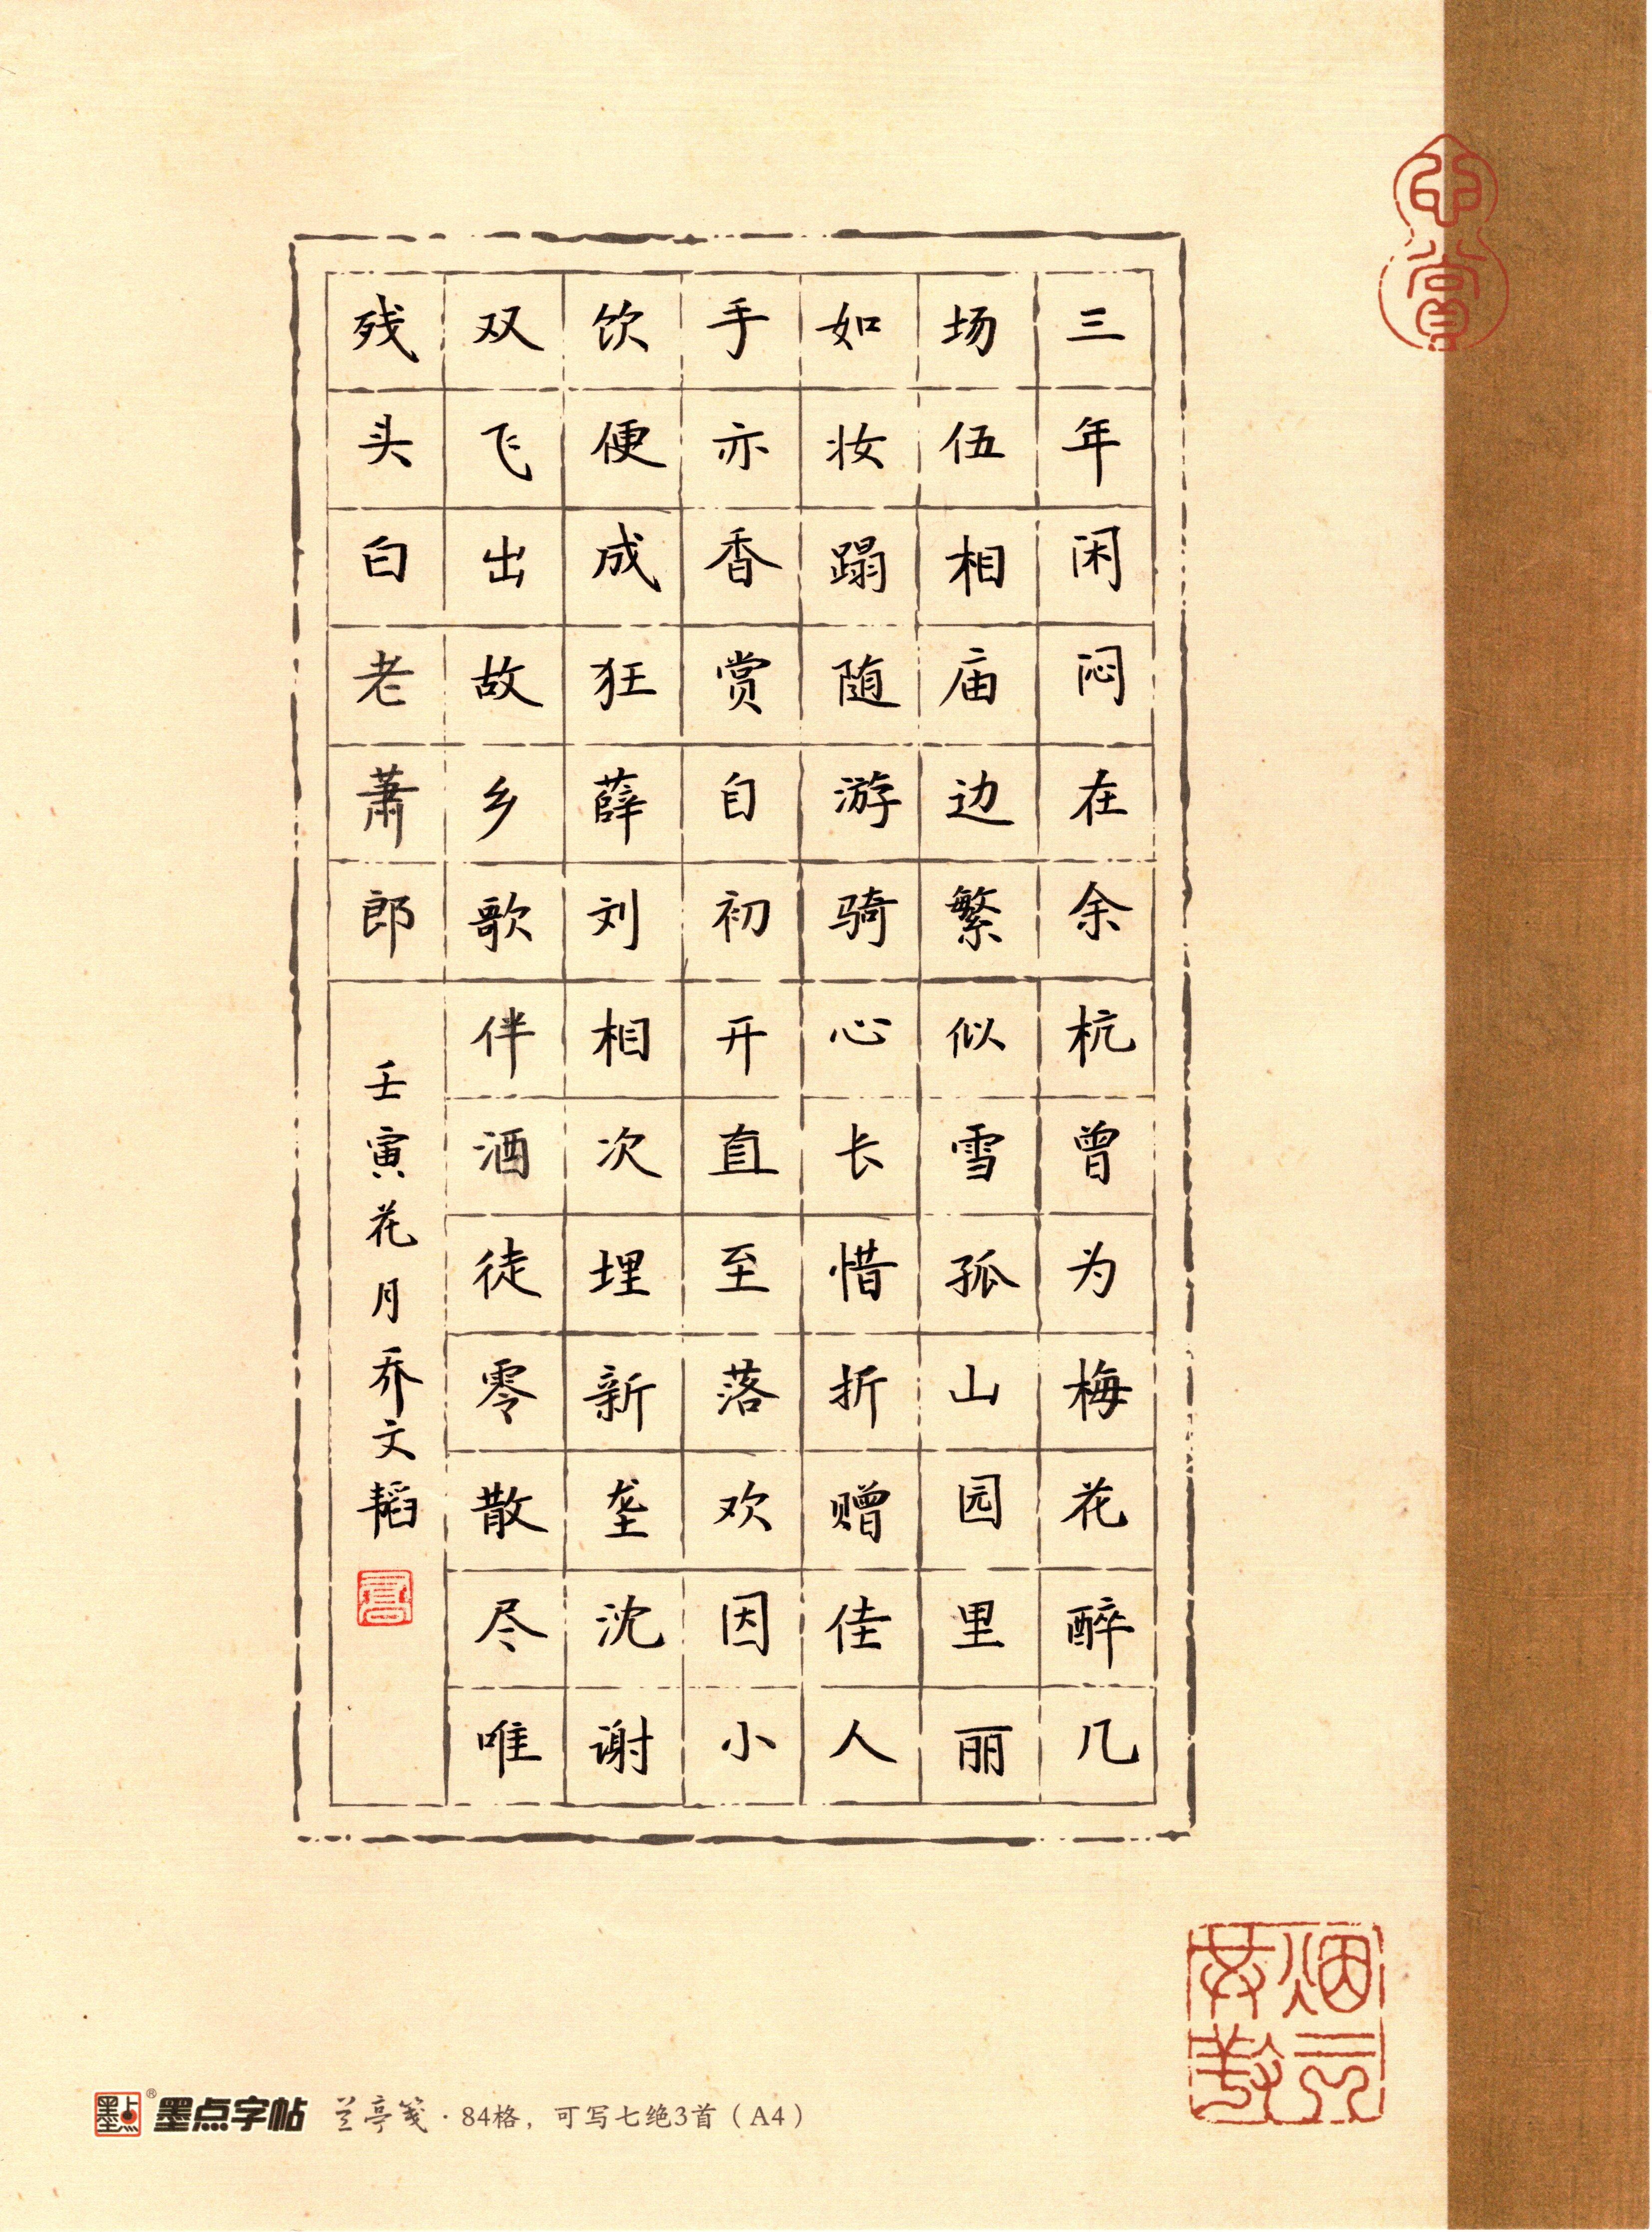 三年闲闷在余杭曾为梅花醉几
场伍相庙边繁似雪孤山园里丽
如妆蹋随游骑心长惜折赠佳人
手亦香赏自初开直至落欢因小
饮便成狂薛刘相次埋新垄沈谢
双飞出故乡歌伴酒徒零散尽唯
残头白老萧郎
壬寅花月乔文韬
墨點® 墨点字帖 兰亭笺·84格，可写七绝3首（A4）